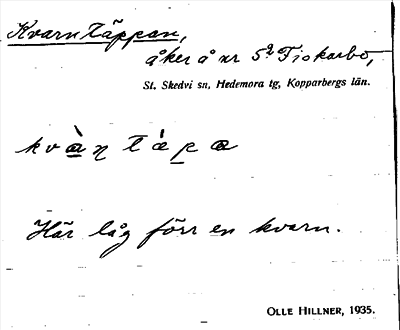 Kvarntäppan,
åker å nr 5² Fiskarbo,
St. Skedvi sn, Hedemora tg, Kopparbergs län.
Här låg förr en kvarn.
OLLE HILLNER, 1935.